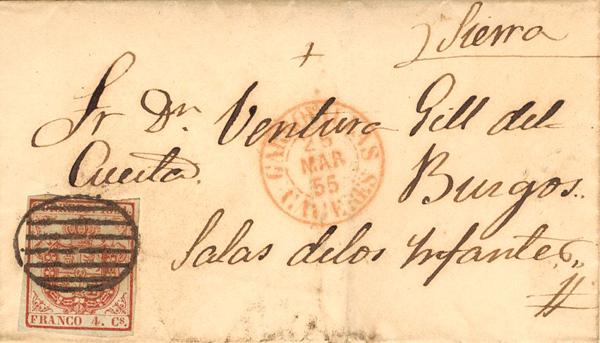 Sierra
+
Sr Dn Ventura Gill del
Cueita. Burgos.
Salas delos Infantes,,
GARROVILLAS
25
MAR
55
CACERES
FRANCO 4. Cs.